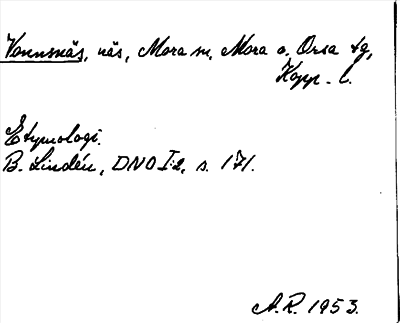 Vonnsnäs, näs, Mora sn, Mora o. Orsa tg,
Kopp. l.
Etymologi.
B. Lindén, DNO I:2, s. 171.
A.R. 1953.